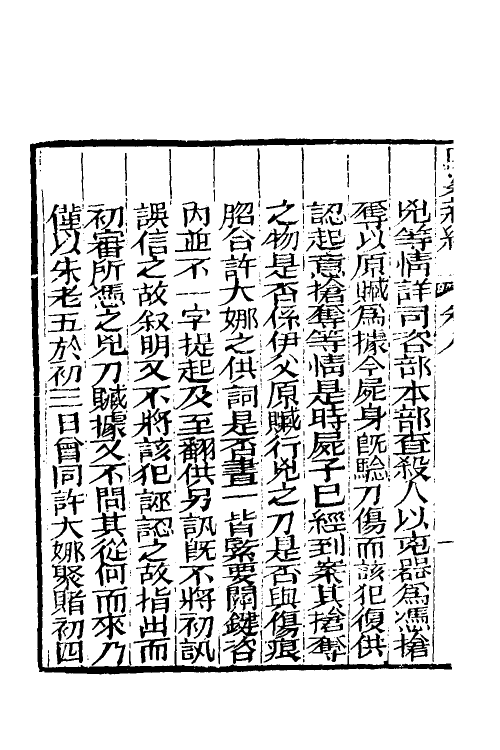 兇等情詳司咨部本部查殺人以兇器為憑搶
奪以原贓為據今屍身旣驗刀傷而該犯復供
認起意搶奪等情是時屍子已經到案其搶奪
之物是否係伊父原贓行兇之刀是否與傷痕
脗合許大娜之供詞是否畫一皆緊要關鍵咨
內並不一字提起及至翻供另訊旣不將初訊
誤信之故叙明又不將該犯誣認之故指出而
初審所憑之兇刀贓據又不問其從何而來乃
僅以朱老五於初三日曾同許大娜聚賭初四